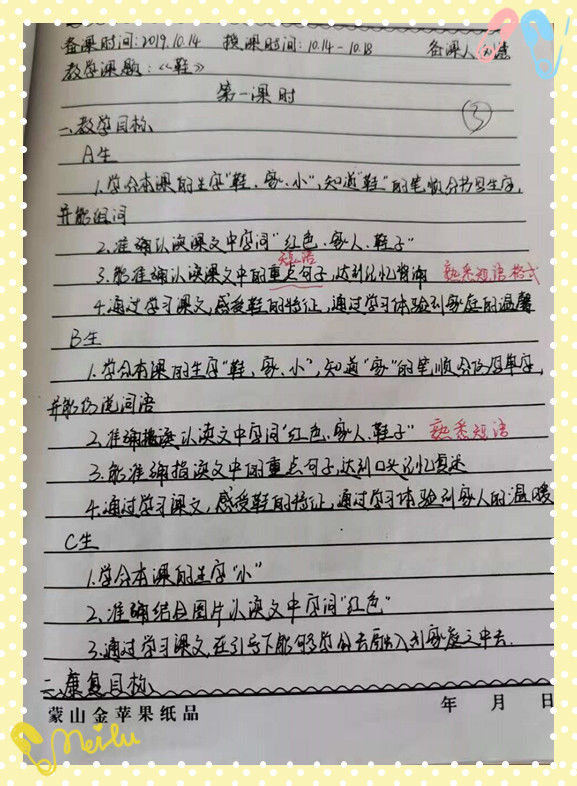 备课时间:2019.10.14 授课时间:10.14-10.18 备课人
教学课题:《鞋》
第一课时
③
一、教学目标、
A生
1.学会本课的生字"鞋、家、小",知道"鞋"的笔顺会书写生字,
并能组词
2.准确认读课文中字词"红色、家人、鞋子"
短语
3.能准确认读课文中的重点句子,达到记忆背诵 熟悉短语格式
4.通过学习课文,感受鞋的特征,通过学习体验到家庭的温馨
B生
1.学会本课的生字"鞋、家、小",知道"家"的笔顺会仿写单字,
并能仿说词语
2.准确指读认读文中字词"红色、家人、鞋子" 熟悉短语
3.能准确指读文中的重点句子,达到口头记忆复述
4.通过学习课文,感受鞋的特征,通过学习体验到家人的温暖
C生
1.学会本课的生字"小"
2.准确结合图片认读文中字词"红色"
3.通过学习课文,在引导下能够融入到家庭之中去.
二、康复目标、
蒙山金苹果纸品 年 月 日
Meilu